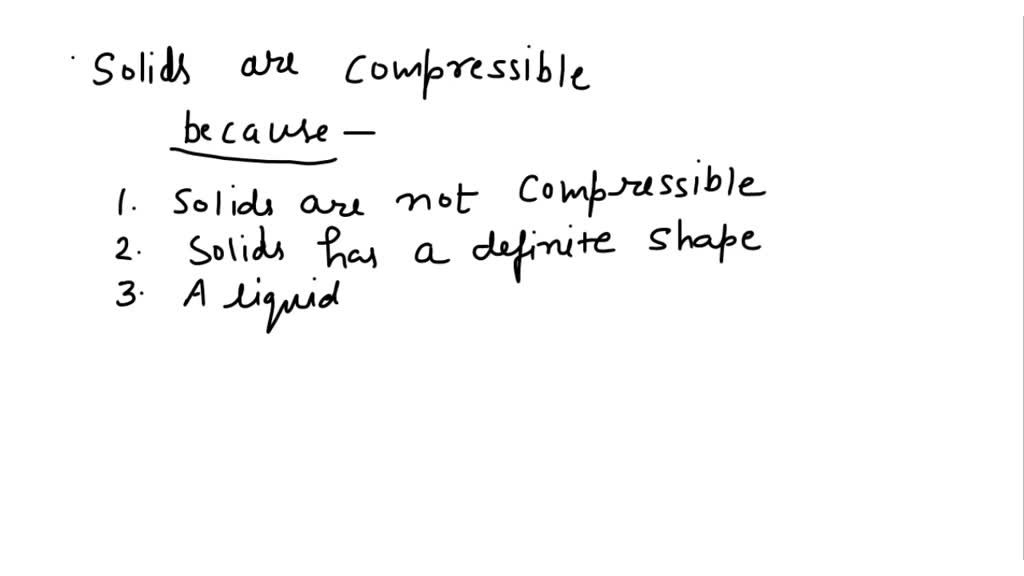 Solids are compressible
because —
1. Solids are not compressible
2. Solids has a definite shape
3. A liquid